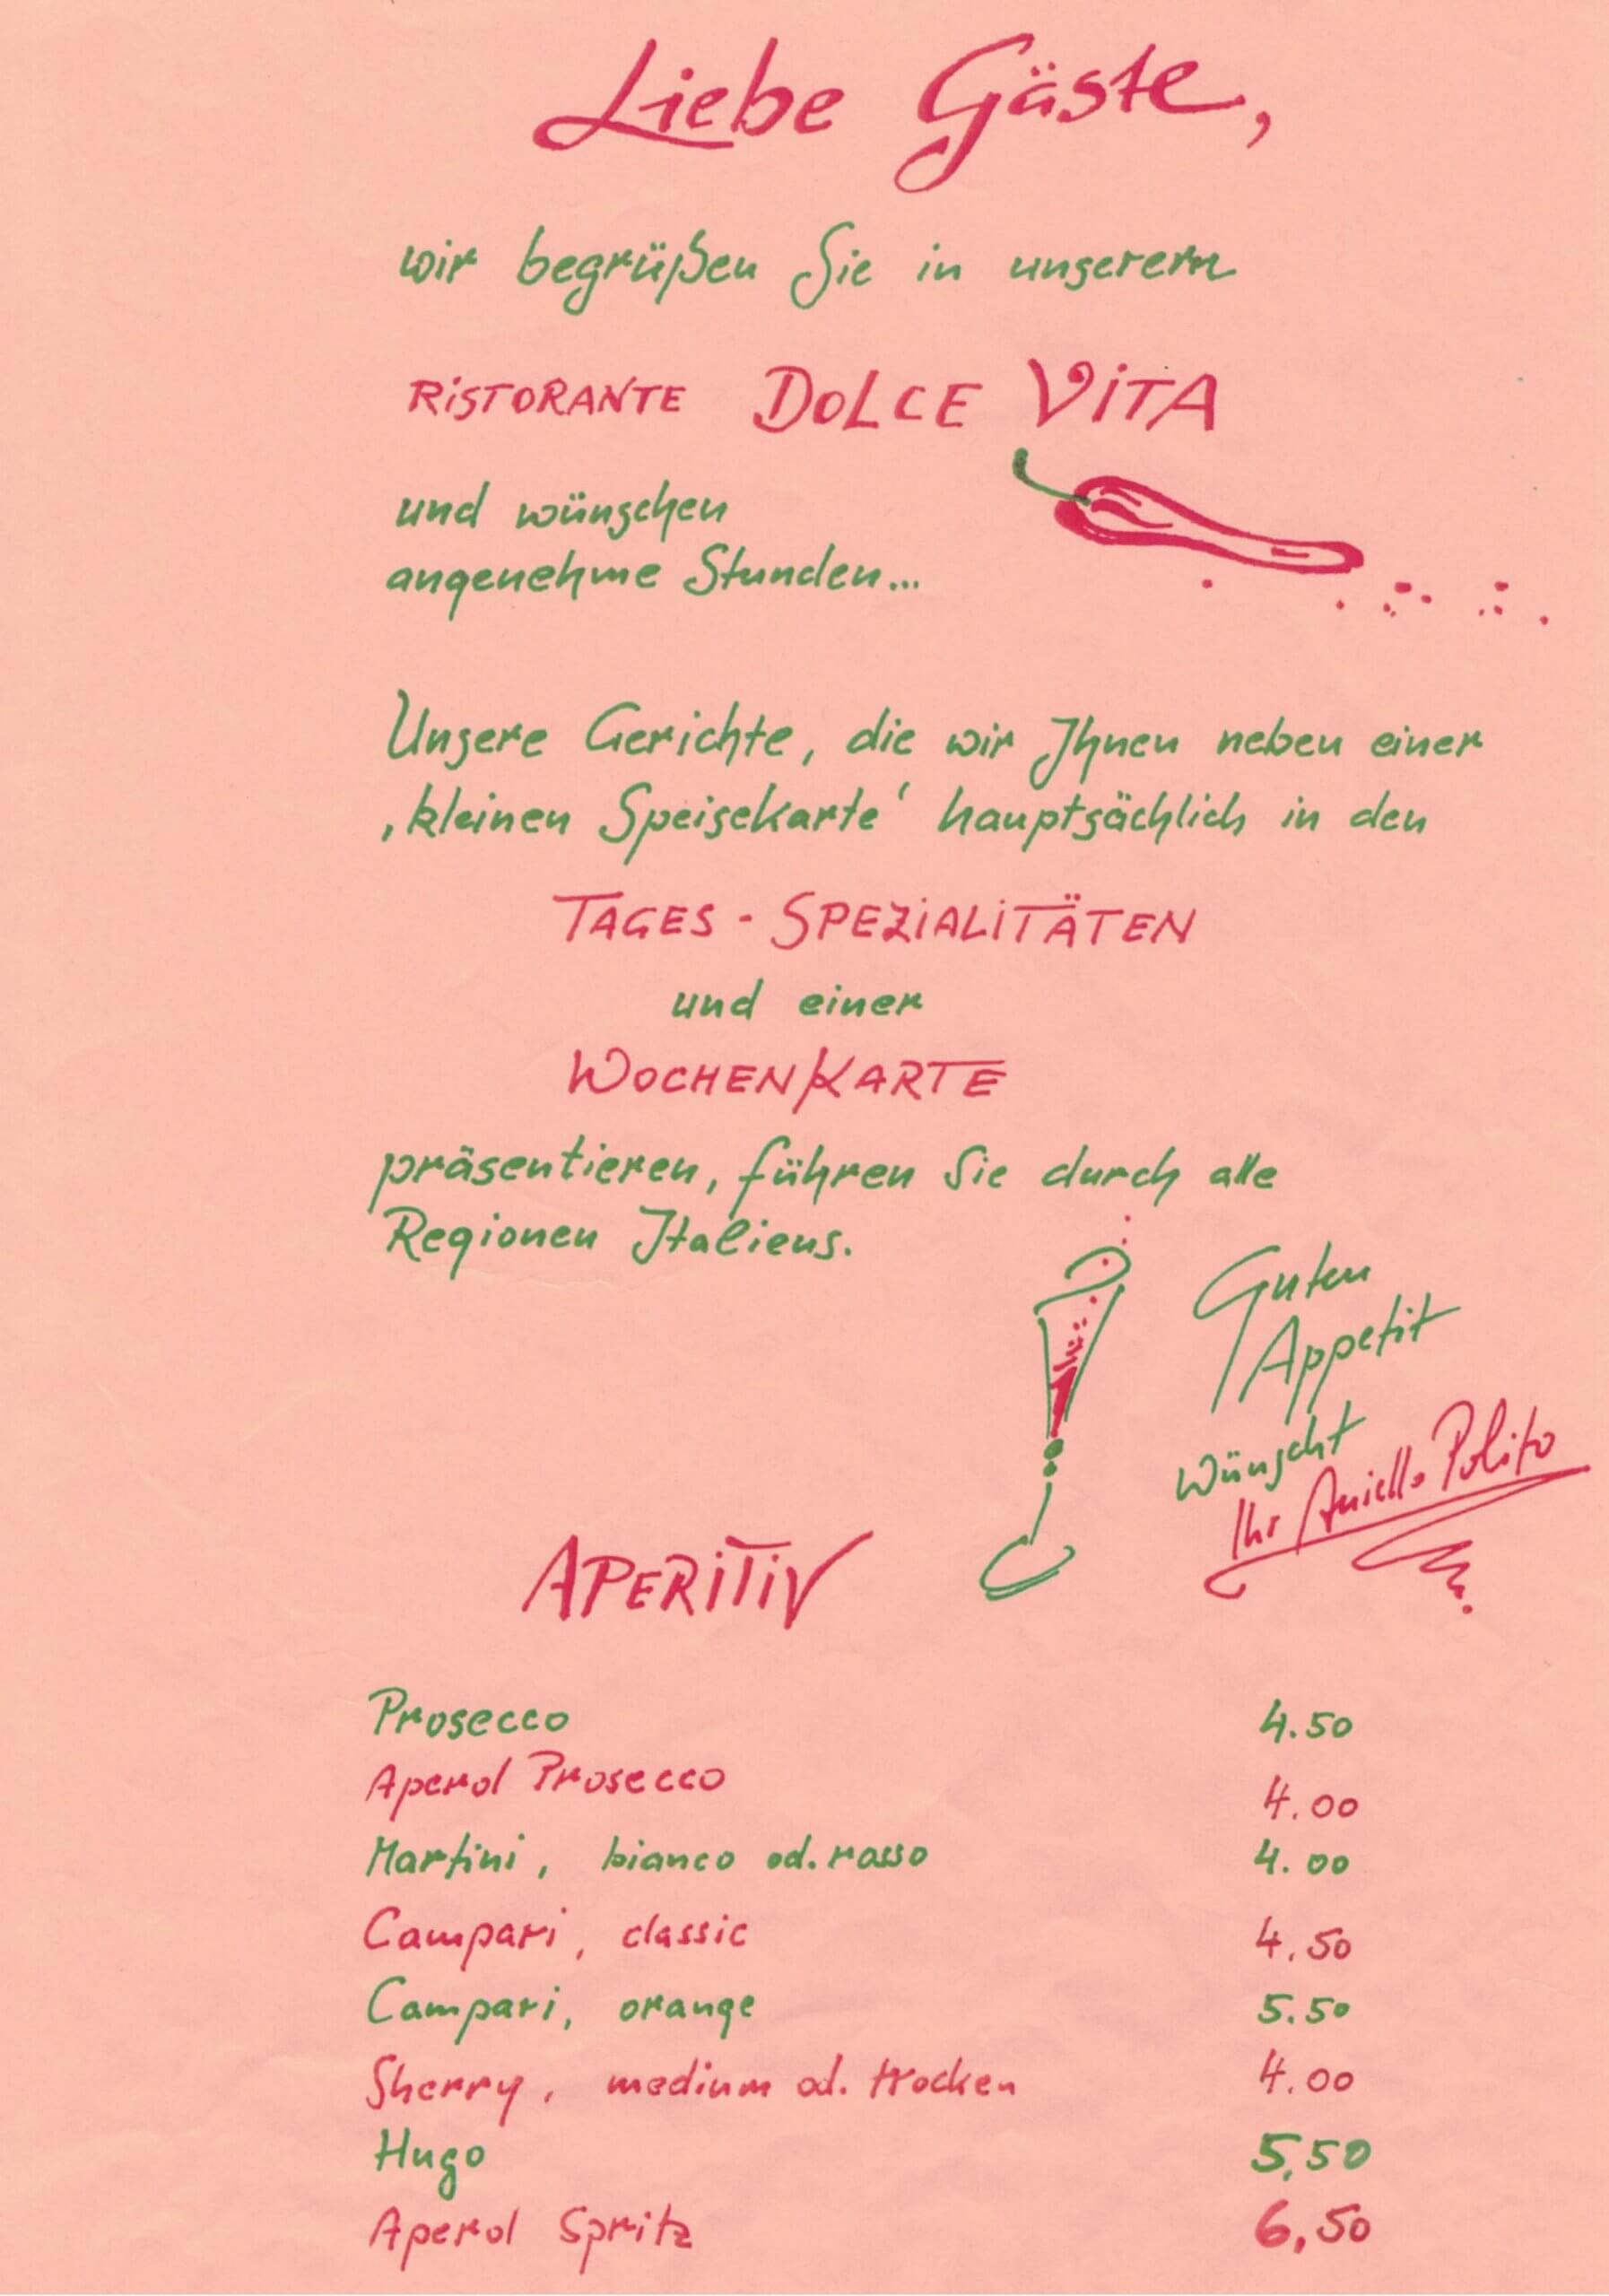 Liebe Gäste,
wir begrüßen Sie in unserem
RISTORANTE DOLCE VITA
und wünschen
angenehme Stunden...
Unsere Gerichte, die wir Ihnen neben einer
‚kleinen Speisekarte‘ hauptsächlich in den
TAGES - SPEZIALITÄTEN
und einer
WOCHENKARTE
präsentieren, führen Sie durch alle
Regionen Italiens.
Guten
Appetit
wünscht
Ihr Aniello Polito
APERITIV
Prosecco 4.50
Aperol Prosecco 4.00
Martini, bianco od. rosso 4.00
Campari, classic 4.50
Campari, orange 5.50
Sherry, medium od. trocken 4.00
Hugo 5,50
Aperol Spritz 6,50